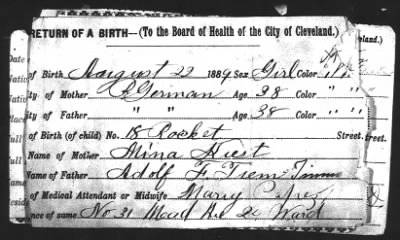 RETURN OF A BIRTH—(To the Board of Health of the City of Cleveland.)
of Birth August 22 1889 Sex Girl Color
ity of Mother German Age 38 Color " "
ity of Father " " Age 38 Color " "
of Birth (of child) No. 18 Rocket Street.
Name of Mother Mina Hiest
Name of Father Adolf F.
of Medical Attendant or Midwife Mary
nce of same. No 31 Mead Ave 20 Ward